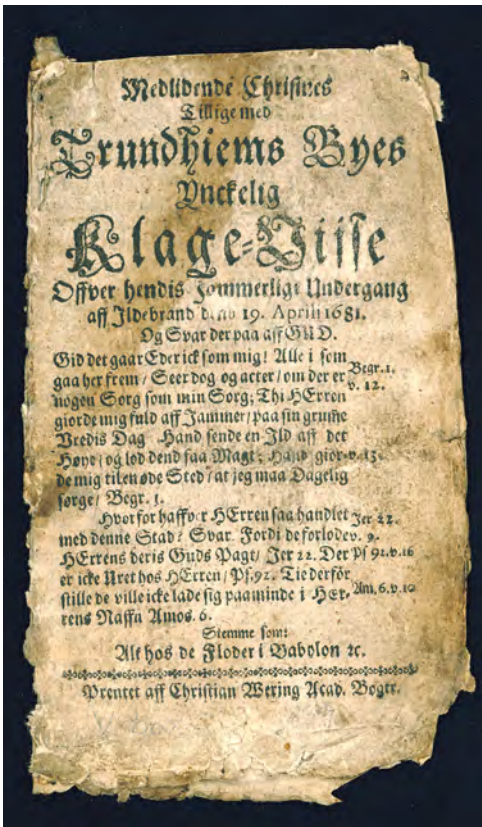 Medlidende Christnes
Tillige med
Trundhiems Byes
Ynckelig
Klage-Viisse
Offver hendis Jommerligt Undergang
aff Ildebrand den 19. Aprili 1681.
Og Svar der paa aff GUD.
Gid det gaar Eder ick som mig! Alle i som
gaa her frem / Seer dog og acter / om der er Begr. 1.
nogen Sorg som min Sorg; Thi HErren v. 12.
giorde mig fuld aff Jammer / paa sin grumme
Vredis Dag Hand sende en Ild aff det
Høye / og lod dend faa Magt; Hand gior- v. 13.
de mig til en øde Sted / at jeg maa Dagelig
sørge / Begr. 1.
Hvorfor haffver HErren saa handlet Jer 22.
med denne Stad? Svar. Fordi de forlode v. 9.
HErrens deris Guds Pagt / Jer 22. Der Ps 92. v. 16
er icke Uret hos HErren / Ps. 92. Tie derfor
stille de ville icke lade sig paaminde i HEr- Am. 6. v. 10
rens Naffn Amos. 6.
Stemme som:
Alt hos de Floder i Babolon ꝛc.
Prentet aff Christian Wering Acad. Bogtr.